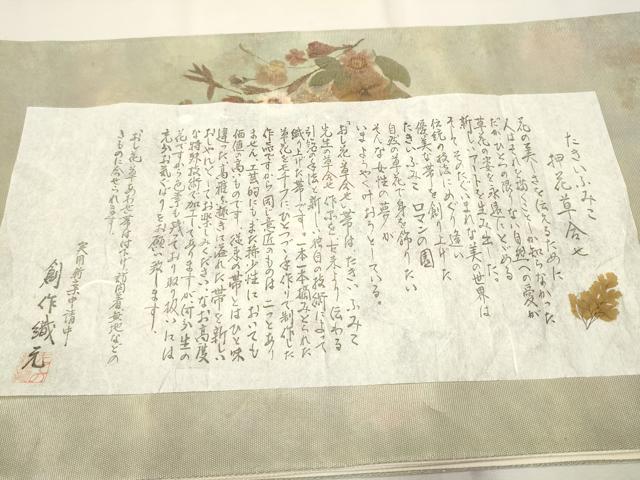 たさいふみこ
押花草合せ
花の美しさを伝えるために
人はそれを描くことしか知らなかった
だがひとりの限りない自然への愛が
草花の姿を永遠にとどめる
新しいアートを生み出した
そしてそのたぐいまれな美の世界は
伝統の技法にめぐり逢い
優美な帯を創り上げた
たさいふみこロマンの園
自然の草花で身を飾りたい
そんな女性の夢が
いまようやくみのろうとしている。
おし花草合せ帯はたさいふみこ
先生の草合せ作品を古来より伝わる
引箔の手法と新しい独自の技術によって
織り上げた帯です。一本一本摘みとられた
草花をモチーフにひとつづつ手作りで制作した
作品ですから同じ意匠のものは二つとあり
ません。工芸的にもまた希少性においても
価値の高いものです。従来の帯とはひと味
違った高雅な趣きに溢れた帯を新しい
おしゃれとしてお楽しみください。なお高度
な特殊技術で加工してありますが何分生の
花ですから色等も残ており取り扱いには
充分お気くばりをお願い致します。
おし花草あわせ帯は付下げ訪問着無地などの
きものに合せられます。
実用新案申請中
創作織元